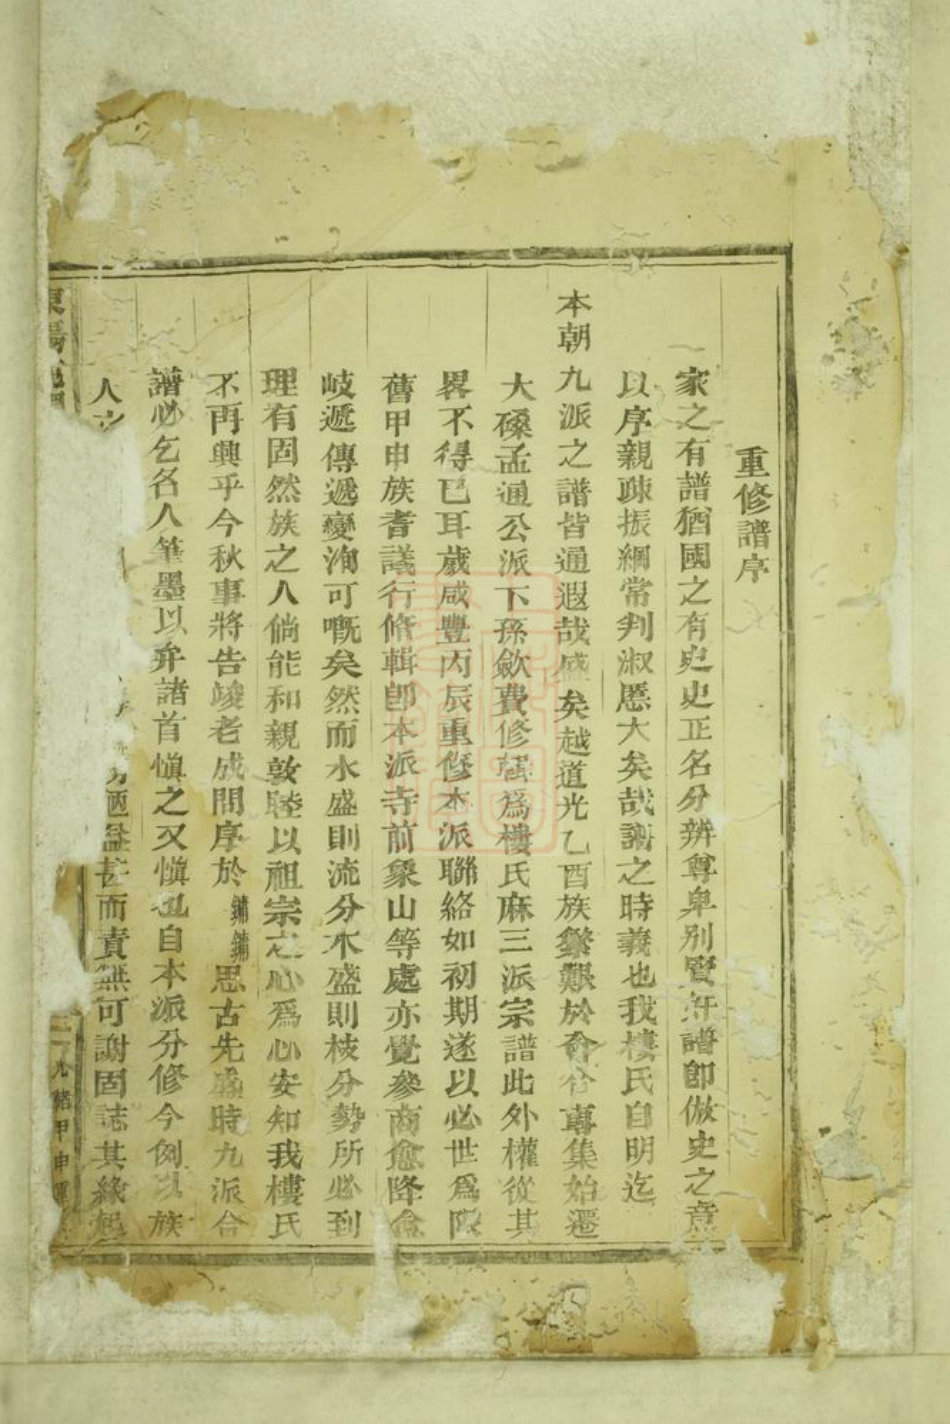 重修譜序
家之有譜猶國之有史史正名分辨尊卑別賢奸譜卽倣史之意
以序親疎振綱常判淑慝大矣哉譜之時義也我樓氏自明迄
本朝九派之譜皆通遐哉盛矣越道光乙酉族繁艱於會合專集始遷
大磉孟通公派下孫斂費修輯爲樓氏麻三派宗譜此外權從其
畧不得已耳歲咸豐丙辰重修本派聯絡如初期遂以必世爲限
舊甲申族耆議行脩輯卽本派寺前象山等處亦覺參商愈降愈
岐遞傳遞變洵可嘅矣然而水盛則流分木盛則枝分勢所必到
理有固然族之人倘能和親敦睦以祖宗之心爲心安知我樓氏
不再興乎今秋事將告竣老成問序於鏽鏽思古先盛時九派合
譜必乞名人筆墨以弁諸首愼之又愼也自本派分修今例以族
人
恧益甚而責無可謝固誌其緣起
東陽
光緒甲申重